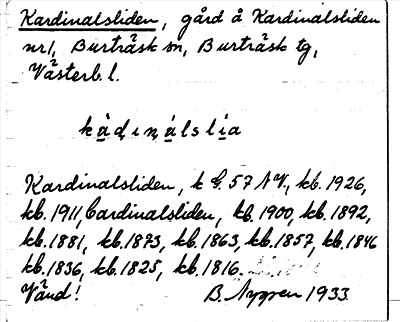 Kardinalsliden, gård å Kardinalsliden
nr 1, Burträsk sn, Burträsk tg,
Västerb. l.
kàḍiṇálslìa
Kardinalsliden, k G. 57 NV., kb. 1926,
kb. 1911, Cardinalsliden, kb. 1900, kb. 1892,
kb. 1881, kb. 1873, kb. 1863, kb. 1857, kb. 1846
kb. 1836, kb. 1825, kb. 1816.
Vänd! B. Nygren 1933.